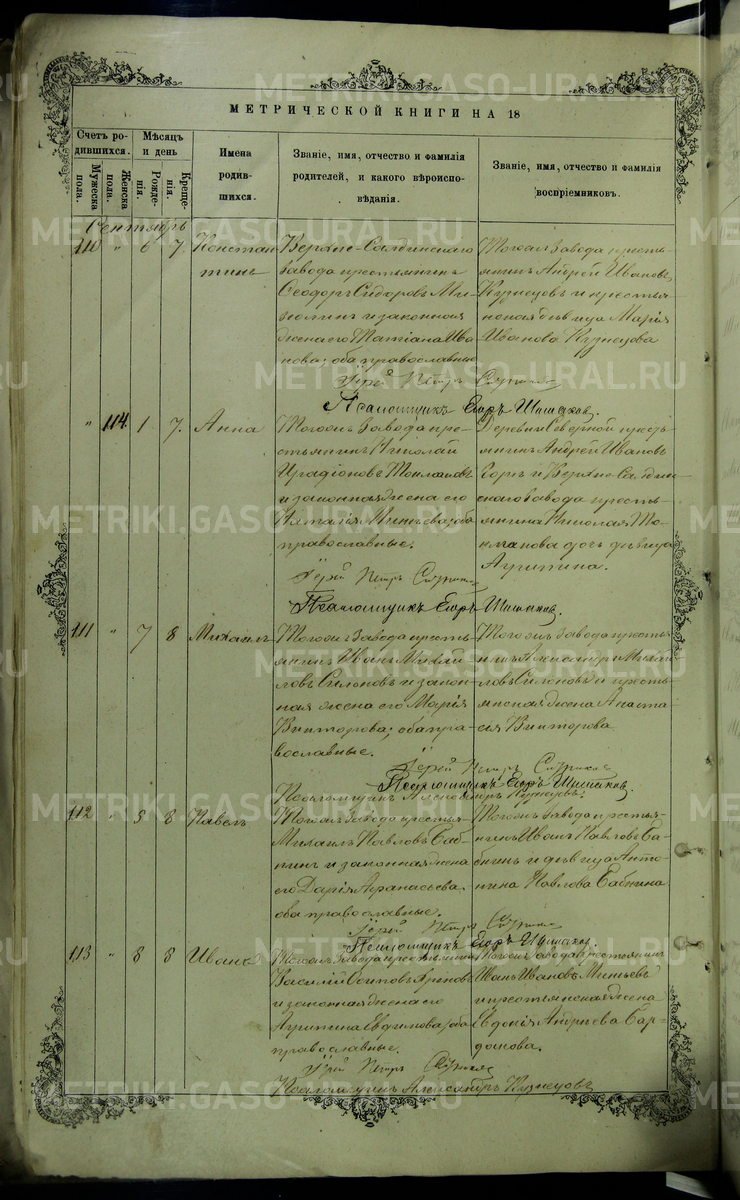 МЕТРИЧЕСКОЙ КНИГИ НА 18
Счетъ родившихся.
Мужеска пола.
Женска пола.
Мѣсяцъ и день
Рожденія.
Крещенія.
Имена родившихся.
Званіе, имя, отчество и фамилія родителей, и какого вѣроисповѣданія.
Званіе, имя, отчество и фамилія воспріемниковъ.
Сентябрь
110 " 6 7. Констан
тинъ
Верхне-Салдинскаго
завода крестьянинъ
Ѳеодоръ Сидоровъ
и законная
жена его Татіана Ива
нова; оба православные
Тогоже завода кресть
янинъ Андрей Ивановъ
Кузнецовъ и крестья
нская дѣвица Марія
Иванова Кузнецова
Іерей Петръ
Псаломщикъ Егоръ Шишаковъ.
" 114 1 7. Анна
Тогоже завода кре
стьянинъ Николай
и законная жена его
Наталія оба
православные.
Деревни Северной кресть
янинъ Андрей Ивановъ
и Верхне-Салдин
скаго завода кресть
янина Николая То
кманова дочь дѣвица
Агрипина.
Іерей Петръ
Псаломщикъ Егоръ Шишаковъ.
111 " 7 8 Михаилъ
Тогоже завода кресть
янинъ Иванъ Михай
ловъ и закон
ная жена его Марія
Викторова; оба пра
вославные.
Тогоже завода кресть
янинъ Александръ Михай
ловъ и кресть
янская жена Анаста
сія Викторова
Іерей Петръ
Псаломщикъ Егоръ Шишаковъ.
Псаломщикъ Александръ Кузнецовъ.
112 " 5 8 Павелъ
Тогоже завода крестья
Михаилъ Павловъ Баб
кинъ и законная жена
его Дарія Аѳанасьева
оба православные.
Тогоже завода крестья
нинъ Иванъ Павловъ Ба
бкинъ и дѣвица Анто
нина Павлова Бабкина
Іерей Петръ
Псаломщикъ Егоръ Шишаковъ.
113 " 8 8 Иванъ
Тогоже завода крестьянинъ
Василій Осиповъ
и законная жена его
Агрипина оба
православные.
Тогоже завода крестьянинъ
Иванъ Ивановъ
и крестьянская жена
Евдокія Андреева
Іерей Петръ
Псаломщикъ Александръ Кузнецовъ
METRIKI.GASO-URAL.RU